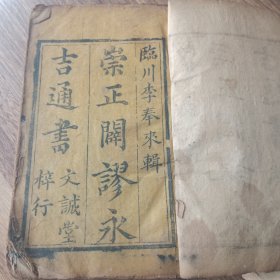 臨川李奉來輯
崇正闢謬永
吉通書
文誠堂
梓行